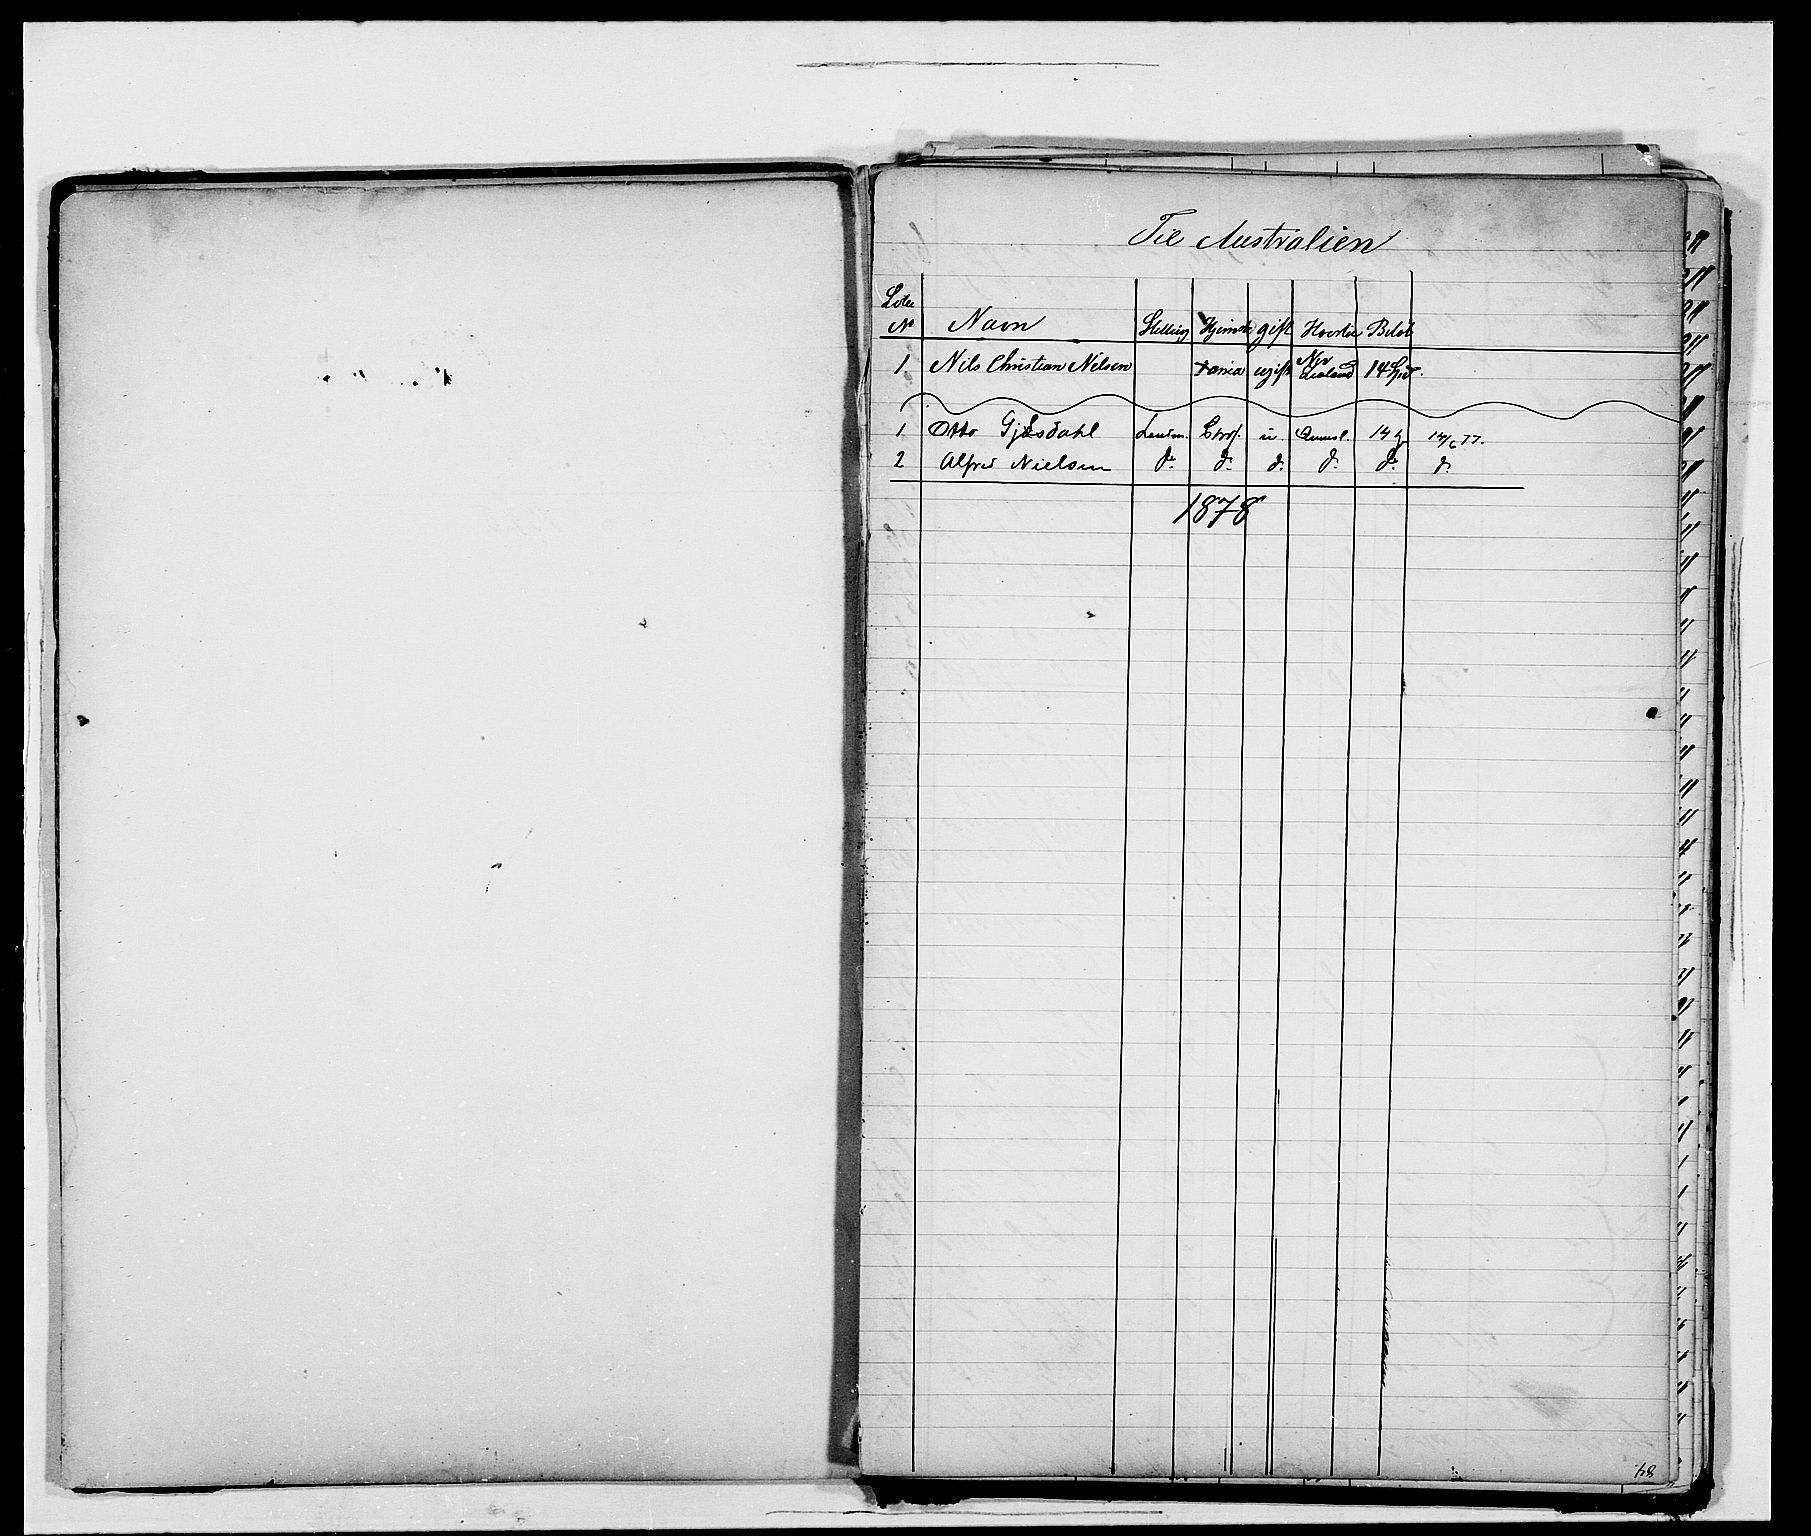 Til Australien
Løbe
No Navn Stilling Hjemsted gift Hvortil Beløb
1 Nils Christian Nilsen ugift New Sealand 14 Spd.
1 Otto Gjesdahl Landm. u Queensl. 14 12/6 77.
2 Alfred Nielsen do. do. do. do. do. do.
1878